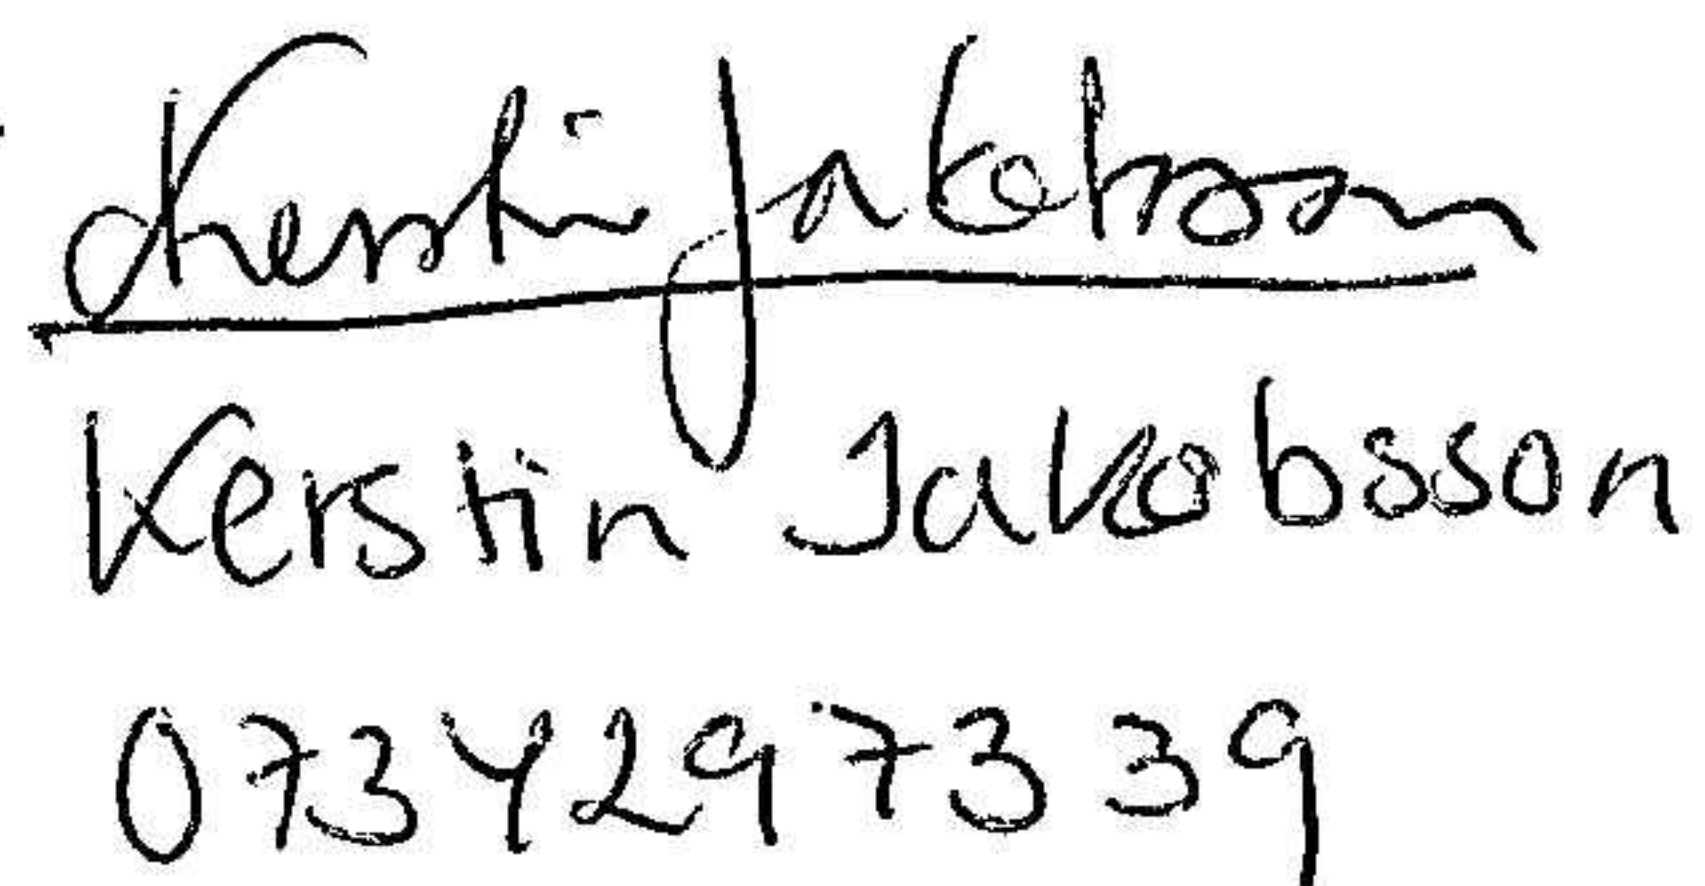 Kerstin Jakobsson
Kerstin Jakobsson
0734297339